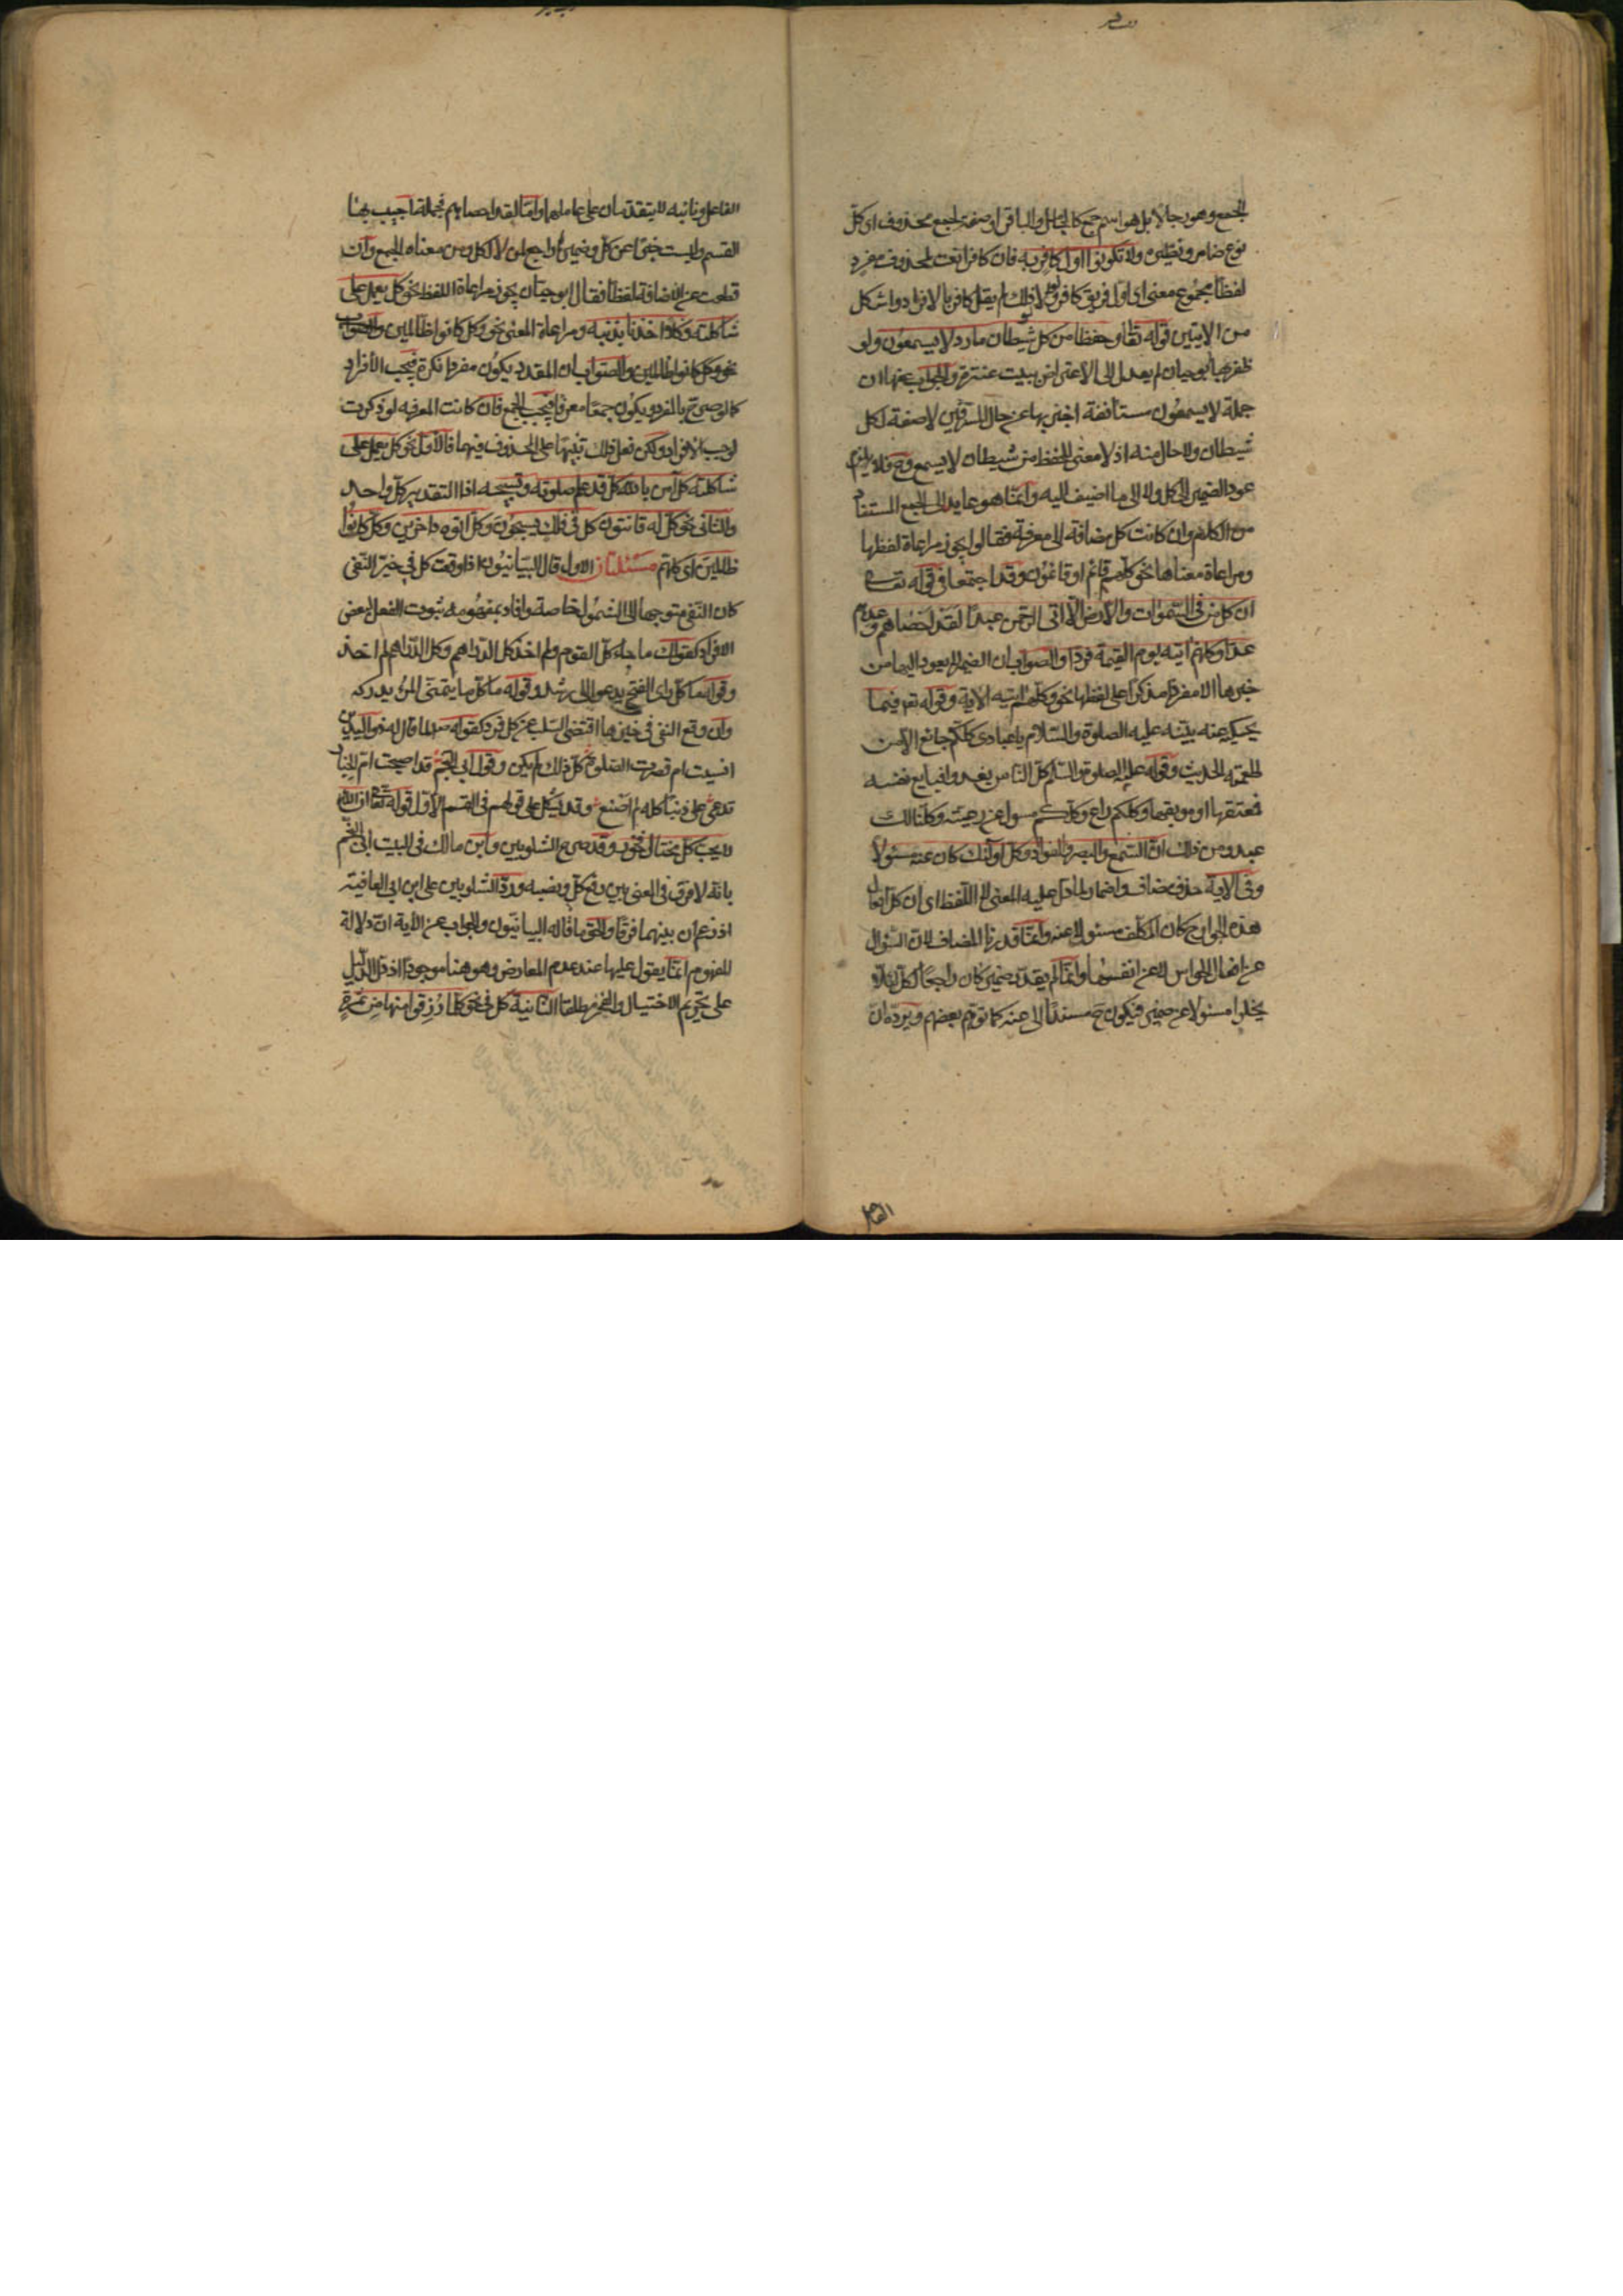 الجمع وهو رجالا بل هو اسم جمع كالجامل والباقر او صفة لجمع محذوف اى كلّ
نوع ضامر ونظيره ولا تكونوا اوّل كافر به فان كافرا نعت لمحذوف مفرد
لفظا مجموع معنى اى اوّل فريق كافر ولولا ذلك لم يقل كافر بالافراد واشكل
من الآيتين قوله تعا وحفظا من كل شيطان مارد لا يسمعون ولو
ظفر بها ابو حيان لم يعدل الى الاعتراض ببيت عنترة والجواب عنها ان
جملة لا يسمعون مستأنفة اخبر بها عن حال المسترقين لا صفة لكل
شيطان ولا حال منه اذ لا معنى للحفظ من شيطان لا يسمع وح فلا يلزم
عود الضمير الى كل ولا الى ما اضيف اليه وانّما هو عايد الى الجمع المستفاد
من الكلام وان كانت كل مضافة الى معرفة فقالوا يجوز مراعاة لفظها
ومراعاة معناها نحو كلّهم قائم او قائمون وقد اجتمعا فى قوله تعا
ان كل من فى السّموات والارض الّا آتى الرحمن عبدا لقد احصاهم وعدهم
عدّا وكلهم آتيه يوم القيمة فردا والصواب ان الضمير لا يعود اليها من
خبرها الا مفردا مذكرا على لفظها نحو وكلّهم آتيه الآية وقوله تع فيما
يحكيه عنه نبيّه عليه الصلوة والسّلام يا عبادى كلكم جائع الّا من
اطعمته الحديث وقوله عليه الصلوة والسّلم كلّ الناس يغدو فبايع نفسه
فمعتقها او موبقها وكلكم راع وكلّكم مسول عن رعيته وكلنا لك
عبد ومن ذلك انّ السّمع والبصر والفواد كل اولئك كان عنه مسئولا
وفى الآية حذف مضاف واضمار لما دلّ عليه المعنى لا اللّفظ اى ان كل افعال
هذه الجوارح كان المكلف مسئولا عنه وانّما قدرنا المضاف لانّ السّؤال
عن افعال الحواس لا عن انفسها وانّما لم يقدّر ضمير كان راجعا لكل لئلا
يخلوا مسئولا عن ضمير فيكون ح مسندا الى عنه كما توهّم بعضهم ويردّه ان
الفاعل
الفاعل ونائبه لا يتقدمان على عاملهما وامّا لقد احصاهم فجملة اجيب بها
القسم وليست خبرا عن كلّ وضميرها راجع لمن لا لكل ومن معناه الجمع وان
قطعت عن الاضافة لفظا فقال ابو حيّان يجوز مراعاة اللفظ نحو كل يعمل على
شاكلته وكلّا اخذنا بذنبه ومراعاة المعنى نحو وكل كانوا ظالمين والصواب
نحو وكل كانوا ظالمين والصّواب ان المقدر يكون مفردا نكرة فيجب الأفراد
كما لو صرّح بالمفرد ويكون جمعا معرفا فيجب الجمع فان كانت المعرفة لو ذكرت
لوجب الافراد ولكن فعل ذلك تنبيها على المحذوف فيهما فالأوّل نحو كل يعمل على
شاكلته كل آمن بالله كل قد علم صلوته وتسبيحه اذا التقدير كلّ واحد
والثانى نحو كلّ له قانتون كل فى فلك يسبحون وكل اتوه داخرين وكل كانوا
ظالمين اى كلهم مسئلتان الاولى قال البيانيون اذا وقعت كل فى خيّز النّفى
كان النّفى متوجها الى الشّمول خاصة وافاد بمفهومه ثبوت الفعل لبعض
الافراد كقولك ما جاء كلّ القوم ولم اخذ كل الدّراهم وكل الدّراهم لم اخذ
وقوله ما كلّ راى الفتى يدعو الى رشد وقوله ما كلّ ما يتمنّى المرء يدركه
وان وقع النفى فى خيزها اقتضى السّلب عن كل فرد كقوله صلع لما قال له ذو اليدين
انسيت ام قصرت الصّلوة كلّ ذلك لم يكن وقول ابى النجم قد اصبحت ام الخيار
تدعى على ذنبا كله لم اصنع وقد يشكل على قولهم فى القسم الاوّل قوله تعا ان الله
لا يحب كل مختال فخور وقد صرّح الشلوبين وابن مالك فى البيت ابى النّجم
بانه لا فرق فى المعنى بين رفع كلّ ونصبه وردّ الشلوبين على ابن ابى العافية
اذ زعم ان بينهما فرقا والحق ما قاله البيانيّون والجواب عن الآية انّ دلالة
المفهوم انّما يعول عليها عند عدم المعارض وهو هنا موجود اذ دلّ الدّليل
على تحريم الاختيال والفخر مطلقا الثانية كل فى نحو كلما رزقوا منها من ثمرة